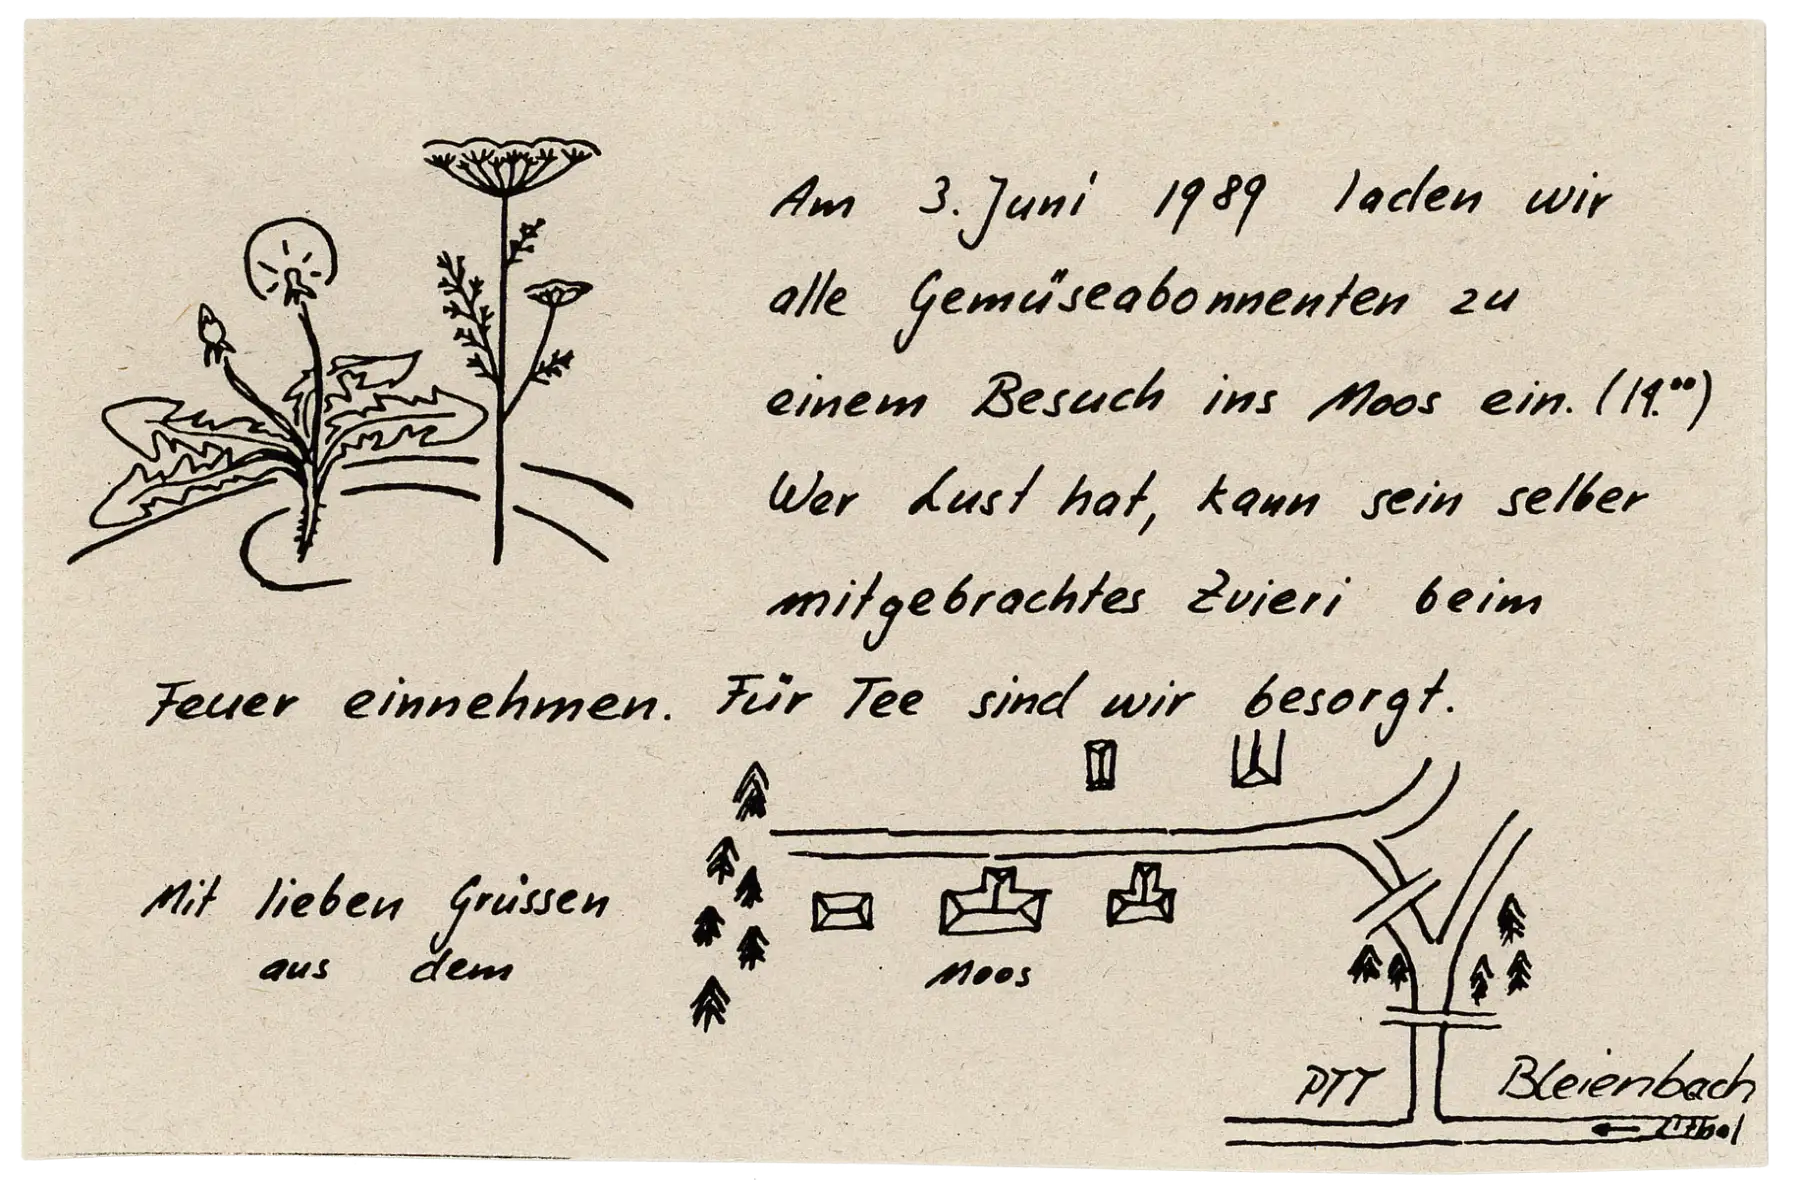 Am 3. Juni 1989 laden wir
alle Gemüseabonnenten zu
einem Besuch ins Moos ein. (14.⁰⁰)
Wer Lust hat, kann sein selber
mitgebrachtes Zvieri beim
Feuer einnehmen. Für Tee sind wir besorgt.
Mit lieben Grüssen
aus dem
Moos
PTT
Bleienbach